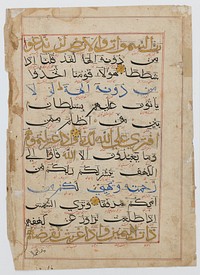 رب السموات والارض لن ندعوا
من دونه الها لقد قلنا اذا
شططا هؤلاء قومنا اتخذوا
من دونه الهة لولا
ياتون عليهم بسلطان
بين فمن اظلم ممن
افترى على الله كذبا واذ اعتزلتموهم
وما يعبدون الا الله فاووا الى
الكهف ينشر لكم ربكم من
رحمته ويهيئ لكم من
امركم مرفقا وترى الشمس
اذا طلعت تزاور عن كهفهم
ذات اليمين واذا غربت تقرضهم